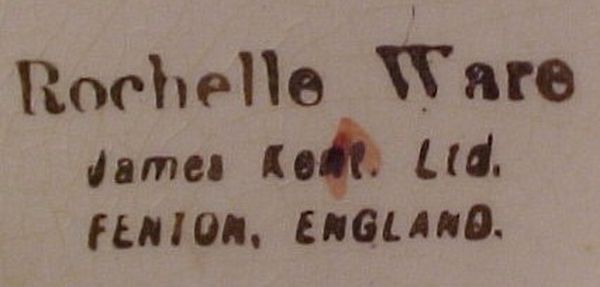 Rochelle Ware
James Kent. Ltd.
FENTON, ENGLAND.